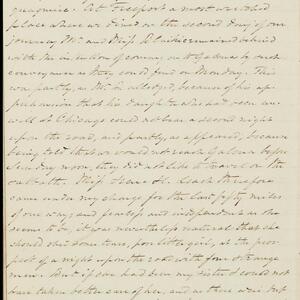 recognise. At Freeport a most wretched
place where we dined on the second day of our
journey Mr. and Miss remained behind
with the intention of coming on to Galena by such
conveyance as they could find on Monday. This
was partly, as Mr. alledged, because of his ap-
prehension that his daughter who had been un-
well at Chicago could not bear a second night
upon the road, and partly as appeared, because
being told that we would not reach Galena before
Sunday noon, they did not like to travel on the
sabbath. Miss therefore
came under my charge for the last fifty miles
of our way and fearless and independent as she
seems to be, it was nevertheless natural that she
should shed some tears, poor little girl, at the pros-
pect of a night upon the road with four strange
men. But if she had been my sister I could not
have taken better care of her, and as there were but